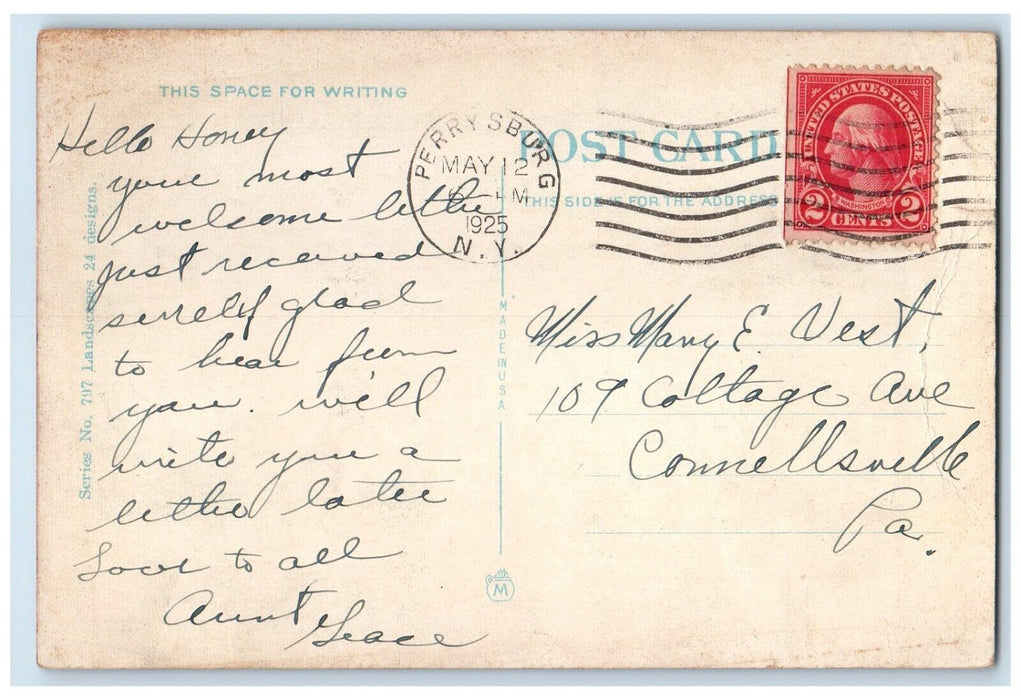 THIS SPACE FOR WRITING
Hello Honey
your most
welcome letter
just received
surely glad
to hear from
you. will
write you a
letter later
Love to all
Aunt Grace
Series No. 797 Landscapes 24 designs.
PERRYSBURG
MAY 12
M
1925
N.Y.
POST CARD
THIS SIDE IS FOR THE ADDRESS
UNITED STATES POSTAGE
WASHINGTON
2 CENTS 2
MADE IN USA
Miss Mary E. Vest,
109 Cottage Ave
Connellsville
Pa.
M